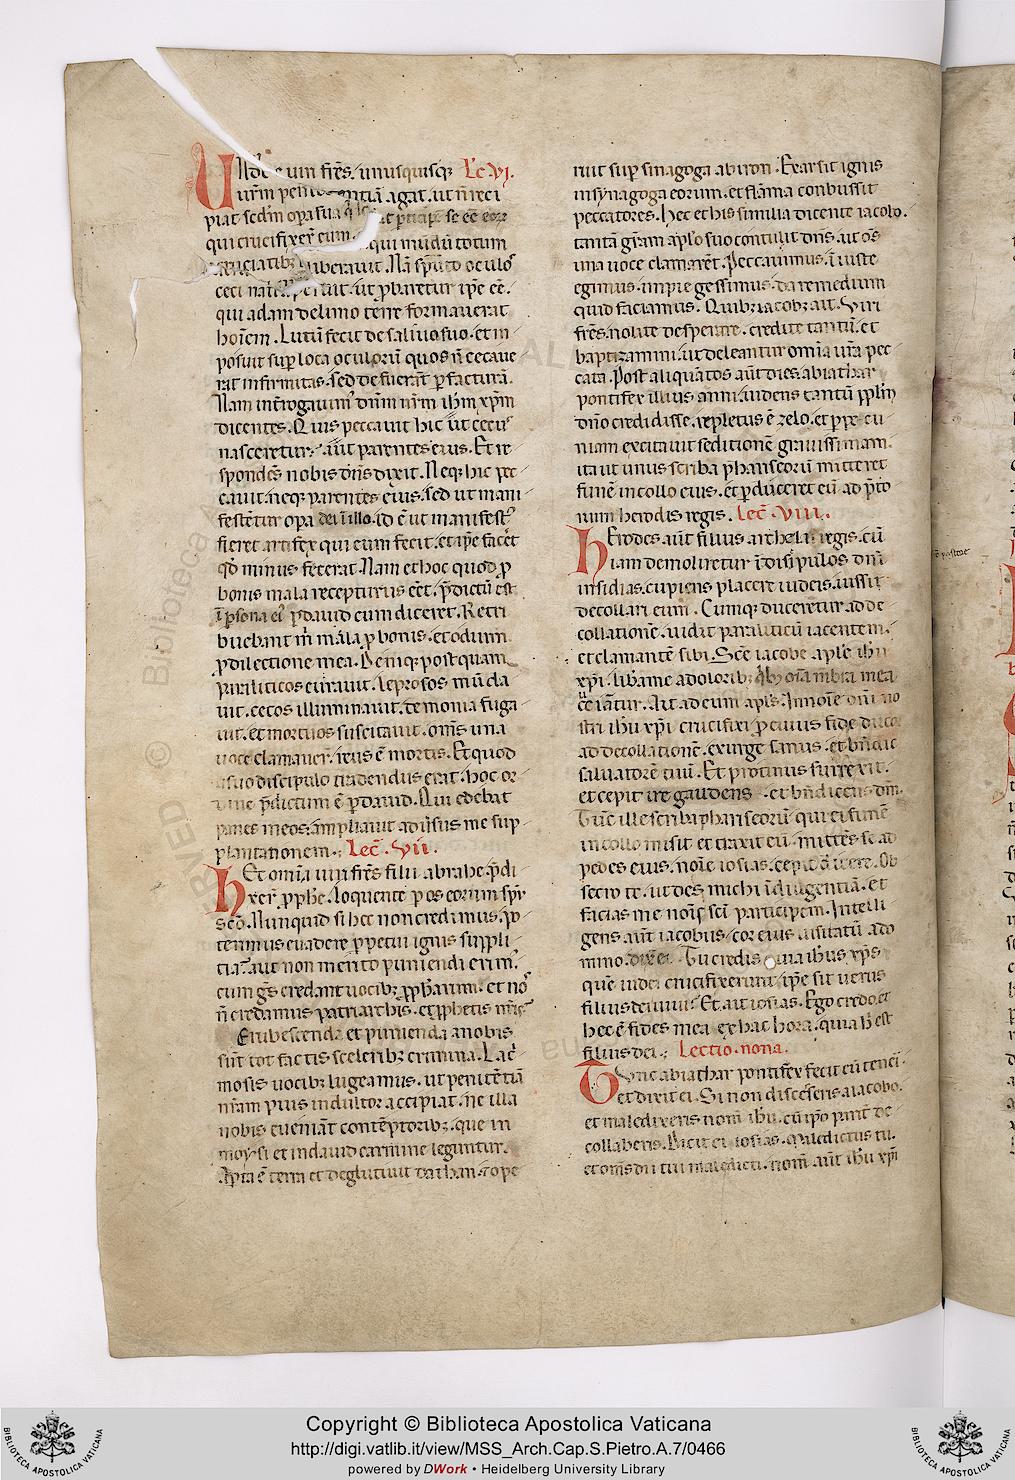 uin fr̄es. unusquisq; Lc̄. vi.
ur̄m agat. ut n̄ reci
piat sed̄m opera sua
qui crucifixer̄ eum. qui mūdū totum
liberauit. Nā sputo oculos
ceci nati ut p̱baretur ip̄e eē.
qui adam de limo terre formauerat
hoīem. Lutum fecit de saliuo suo. et in
posuit sup̱ loca oculorū quos n̄ cecaue
rat infirmitas. sed defuerāt p̱ facturā.
Nam int̄rogauim᷒ dn̄m nr̄m ih̄m xp̄m
dicentes. Quis peccauit hic ut cecus
nasceretur. aut parentes eius. Et re
spondēs nobis dn̄s dixit. Neq; hic pec
cauit. neq; parentes eius. sed ut mani
festētur opera dei ī illo. id ē ut manifest᷒
fieret artifex qui eum fecit. et ip̄e facēt
qd̄ minus fecerat. Nam et hoc quod p̱
bonis mala recepturus eēt. p̄dictū est
ī p̱sona ei᷒ p̱ dauid cum diceret. Retri
buebant m̄ mala p̱ bonis. et odium
p̱ dilectione mea. Deniq; postquam
paraliticos curauit. leprosos mūda
uit. cecos illuminauit. demonia fuga
uit. et mortuos suscitauit. om̄s una
uoce clamauer̄. reus ē mortis. Et quod
a suo discipulo tradendus erat. hoc or
dine p̄dictum ē p̱ dauid. Qui edebat
panes meos. ampliauit aduersus me sup
plantationem. Lec̄. vii.
HEc om̄ia uiri fr̄es filii abrahe p̄di
xer̄ p̱ph̄e. loquente p̱ os eorum sp̄u
sc̄o. Nunquid si hec non credimus. po
terimus euadere p̱petui ignis suppli
cia. aut non merito puniendi erim᷒.
cum ḡs credant uocib; p̱ph̄arum. et nos
n̄ credamus patriarchis. et p̱phetis nr̄is.
Erubescenda et punienda a nobis
sunt tot factis sceleribus crimina. Lac̄
mosis uocib; lugeamus. ut penitētiā
nr̄am pius indultor accipiat. ne illa
nobis eueniāt contēptorib;. que in
moysi et in dauid carmine leguntur.
Ap̱ta ē terra et deglutiuit dathan. ī ope
ruit sup̱ sinagoga abiron. Exarsit ignis
in synagoga eorum. et flāma conbussit
peccatores. Hec et his similia dicente iacobo.
tantā gr̄am ap̄lo suo contulit dn̄s. ut om̄s
una uoce clamarēt. Peccauimus. iniuste
egimus. impie gessimus. da remedium
quid faciamus. Quib; iacob; ait. Viri
fr̄es. nolite desperare. credite tantū. et
baptizamini. ut deleantur om̄ia ur̄a pec
cata. Post aliquātos aūt dies. abiathar
pontifex illius anni. uidens tantū pp̱lm̄
dn̄o credidisse. repletus ē zelo. et p̱ pecu
niam excitauit seditionē grauissimam.
ita ut unus scriba phariseorū mitteret
funē in collo eius. et p̱duceret eū ad p̄to
rium herodis regis. Lec̄. viii.
HErodes aūt filius archelai regis. cū
iam demoliretur ī discipulos dn̄i
insidias. cupiens placere iudeis. iussit
decollari eum. Cumq; duceretur ad de
collationē. uidit paraliticū iacentem.
et clamantē sibi. Sc̄e iacobe ap̄le ih̄u
xp̄i. libera me a dolorib; quib; om̄ia mb̄ra mea
cruciantur. Ait ad eum ap̄ls. In noīe dn̄i no
stri ih̄u xp̄i crucifixi p̱ cuius fide ducor
ad decollationē. exurge sanus. et bn̄dic
saluatorē tuū. Et protinus surrexit.
et cepit ire gaudens et bn̄dicens dm̄.
Tunc ille scriba phariseorū qui ei funē
in collo misit et traxit eū. mittēs se ad
pedes eius. noīe iosias. cepit dicere. Ob
secro te. ut des michi indulgentiā. et
facias me noīs sc̄i participem. Intelli
gens aūt iacobus. cor eius uisitatū a do
mino. dixit ei. Tu credis quia ih̄us xp̄s
quē iudei crucifixerunt. ip̄e sit uerus
filius dei uiui. Et ait iosias. Ego credo. et
hec ē fides mea ex hac hora. quia h̄ est
filius dei. Lectio. nona.
TUnc abiathar pontifex fecit eū teneri.
et dixit ei. Si non discesseris a iacobo.
et maledixeris nom̄ ih̄u. cū ip̄o parit̄ de
collaberis. Dicit ei iosias. Maledictus tu.
et om̄s dii tui maledicti. nom̄ aūt ih̄u xp̄i
Copyright © Biblioteca Apostolica Vaticana
http://digi.vatlib.it/view/MSS_Arch.Cap.S.Pietro.A.7/0466
powered by DWork • Heidelberg University Library